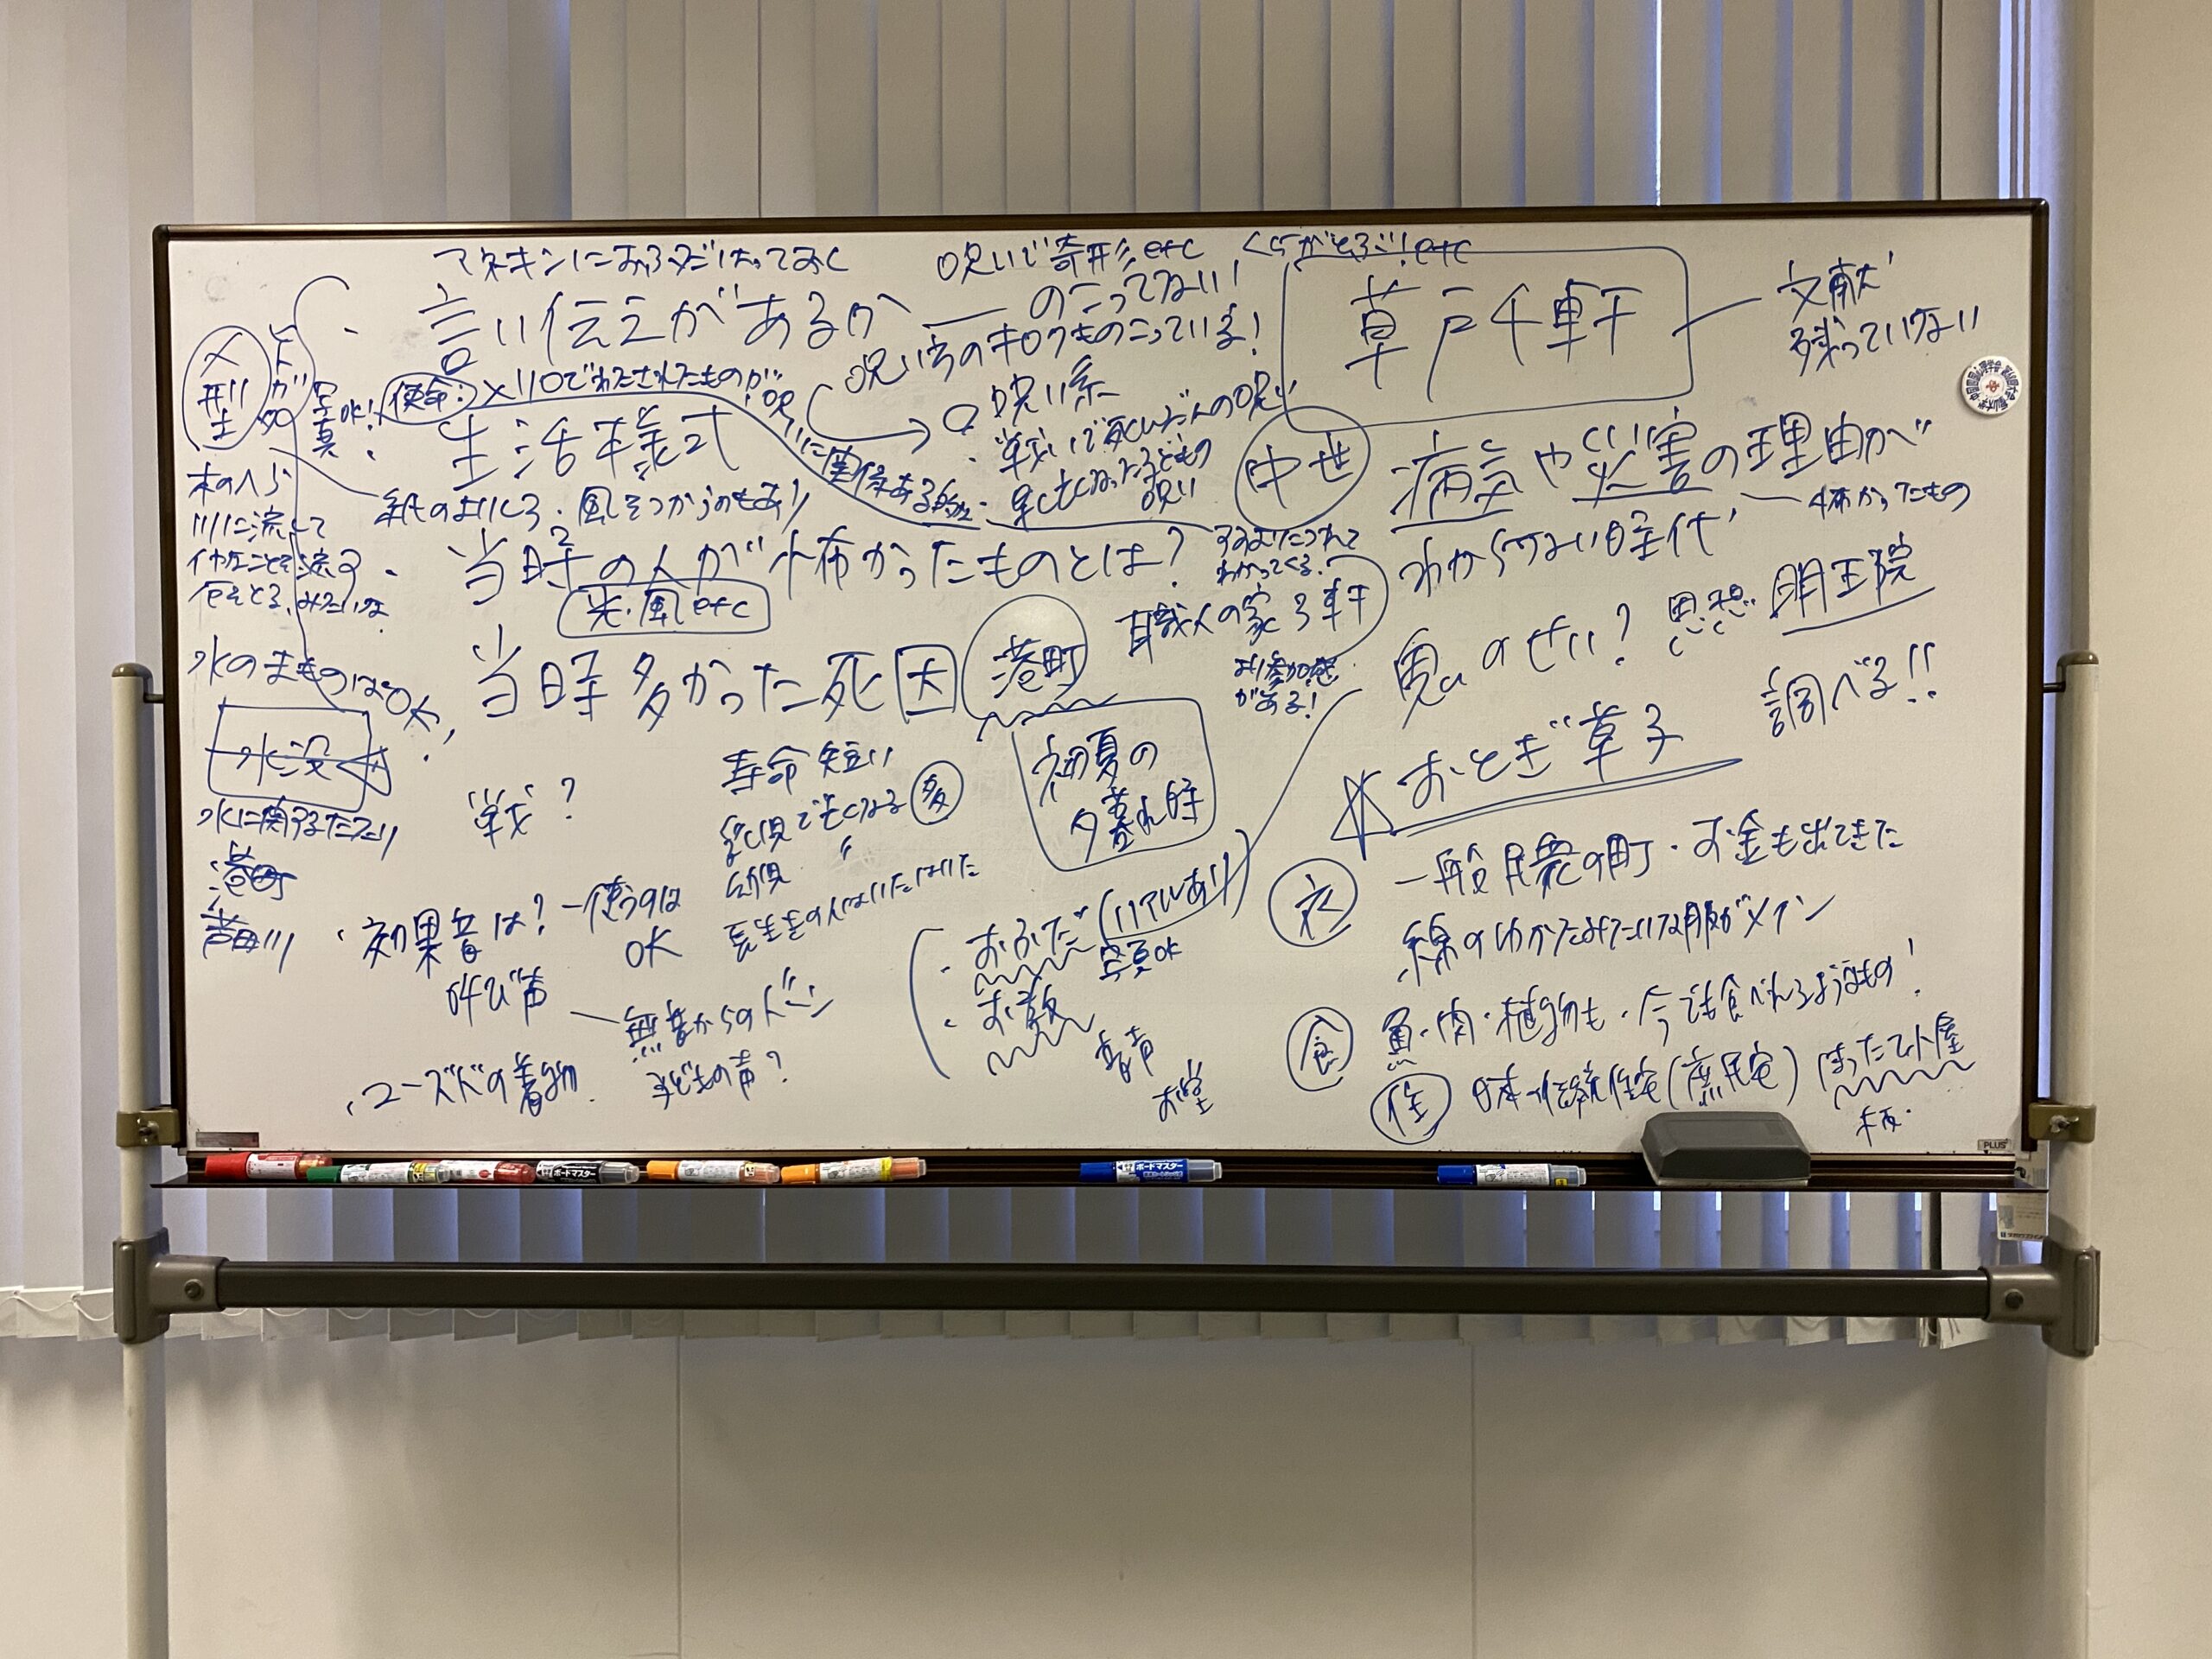 マネキンにおふだはっておく
呪いで奇形etc
言い伝えがあるか
のこってない!
呪い方のキロクものこっている!
草戸千軒
文献
残っていない
人形
写真OK!
使命:メリロでわたされたものが
呪いに関係ある
生活様式
Q 呪い系
・戦いで死んだ人の呪い
・早く亡くなった子どもの呪い
中世
病気や災害の理由が
わからない時代
怖かったもの
木のへら
川に流して
イヤなことを流す
厄をとる、みたいな
紙のよりしろ・風をつかうのもあり
当時の人が怖かったものとは?
光・風etc
すすむにつれて
わかってくる。
職人の家3軒
より参加感
がある!
鬼のせい?
思想
明王院
調べる!!
水のまものはOK
水没
水に関するたたり
港町
芦田川
当時多かった死因
港町
初夏の
夕暮れ時
☆おとぎ草子
戦?
寿命短い
乳児で亡くなる 多
幼児 〃
長生きの人はいたはいた
・効果音は?
使うのは
OK
叫び声
無音からの
子どもの声?
・ユーズドの着物
・おふだ (リアルあり)
写真OK
・お教
音声
お堂
衣
一般民衆の町・お金も出てきた
綿のゆかたみたいな服がメイン
食
魚・肉・植物も・今でも食べれるようなもの!
住
日本伝統住宅(庶民宅)
ほったて小屋
板
PLUS
ボードマスター
ボードマスター